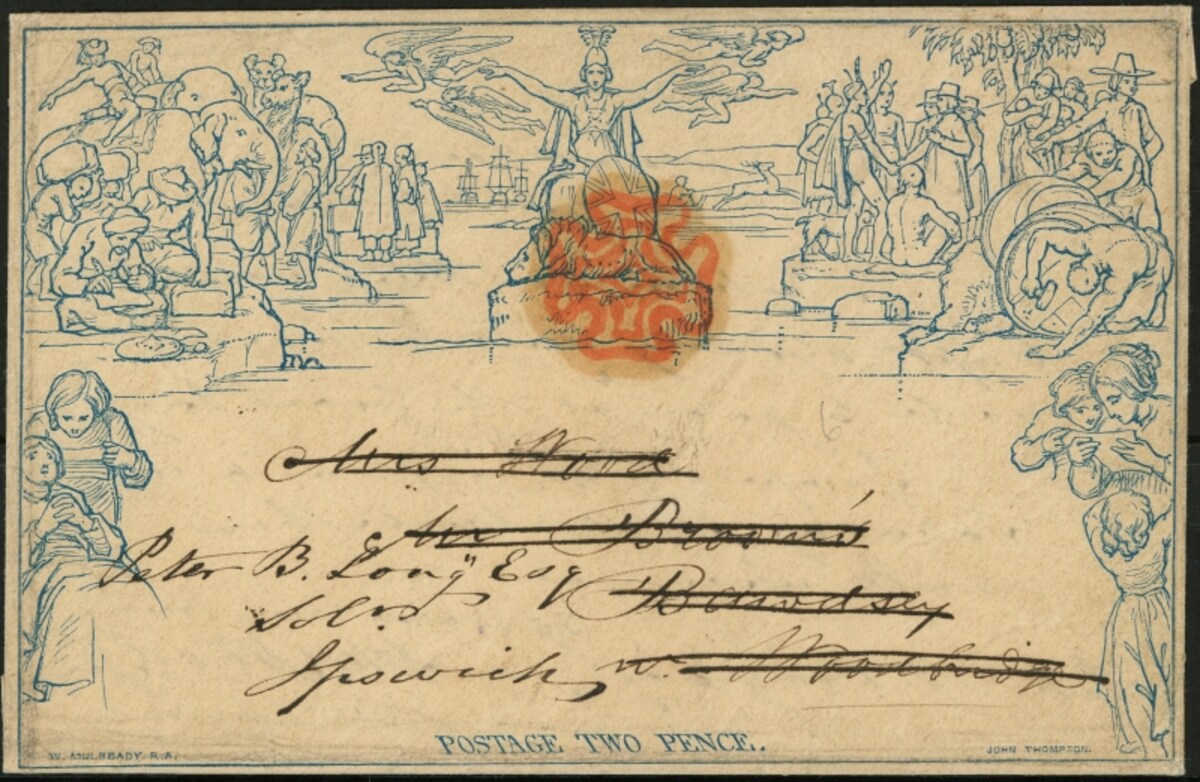 Mrs Wood
Mr Broom's
Peter B. Long Esq
Bawdsey
Solr.
Ipswich nr. Woodbridge
POSTAGE TWO PENCE.
W. MULREADY. R.A.
JOHN THOMPSON.